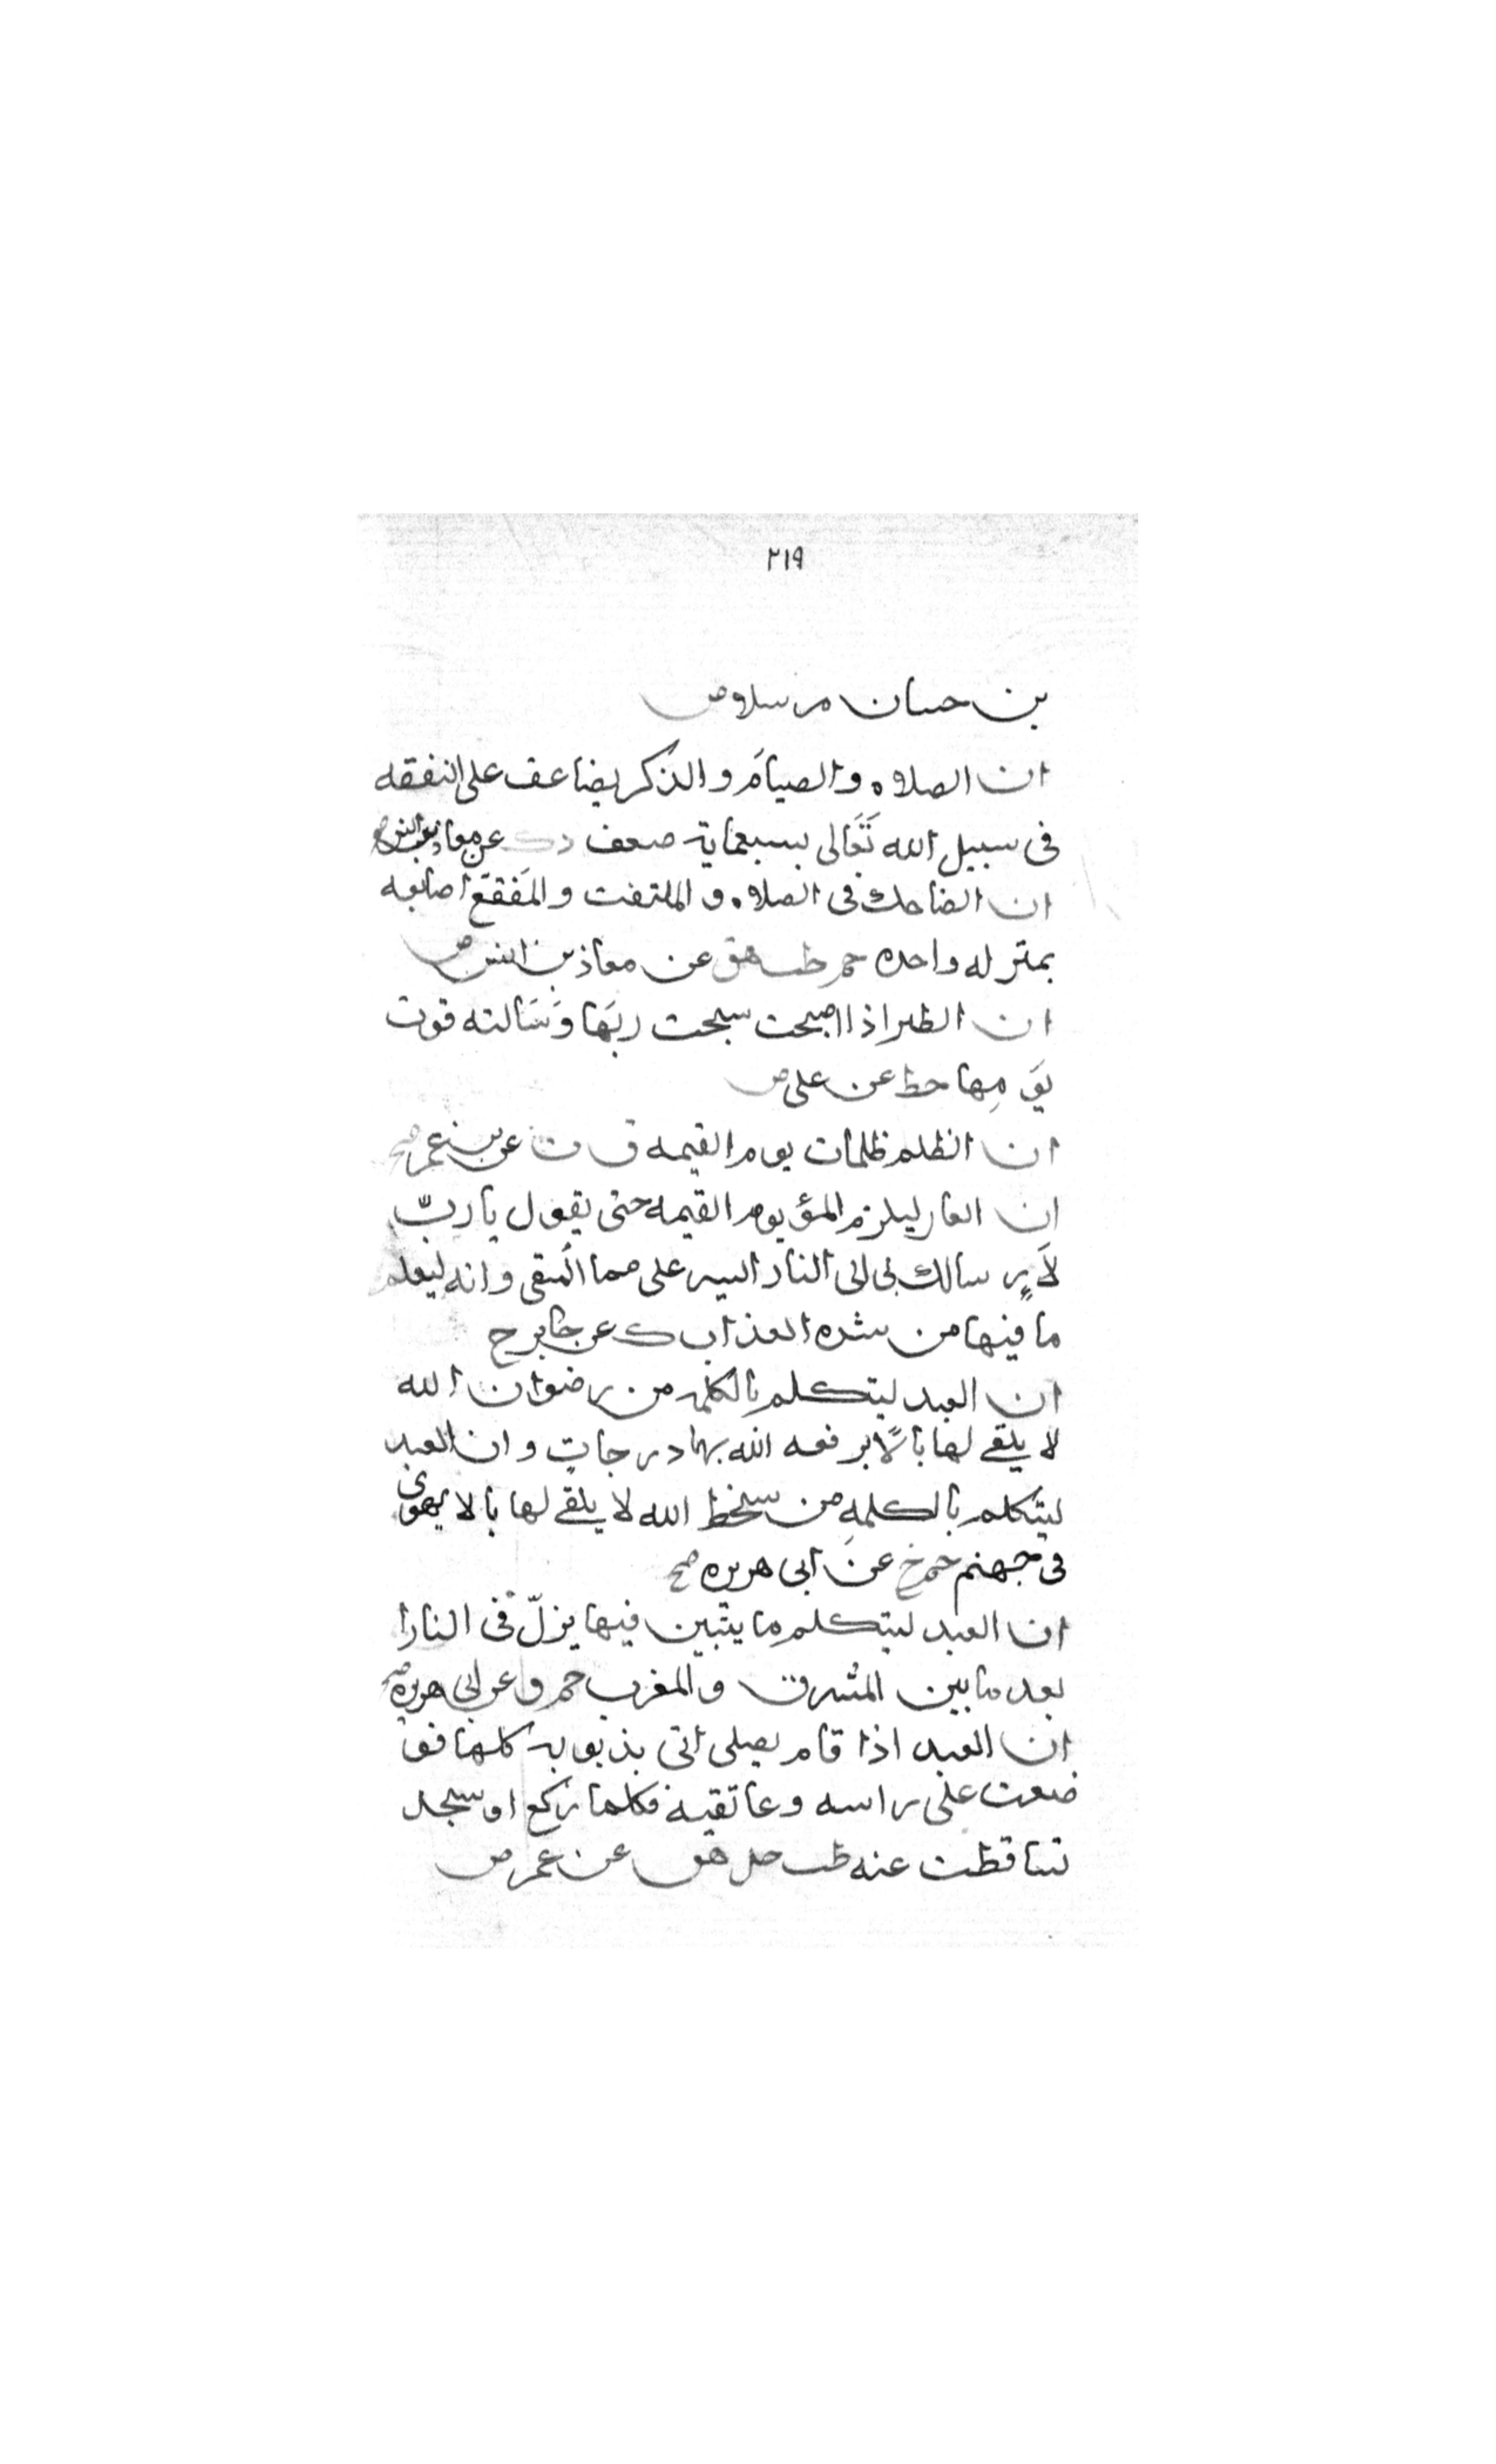 ٢١٩
بن حسان مرسلا ض
ان الصلاه والصيام والذكر يضاعف على النفقه
فى سبيل الله تَعَالى بسبعماية ضعف د ك عن معاذ بن انس صح
ان الضاحك فى الصلاه والملتفت والمَفقع اصابعه
بمنزله واحده حم طب هق عن معاذ بن انس ض
ان الطير اذا اصبحت سبحت ربَها وَسَالته قوت
يَو مِها خط عن على ض
ان الظلم ظلمات يوم القيمه ق ت عن بن عمر صح
ان العار ليلزم المرؤ يوم القيمه حتى يقول يا ربّ
لاَرسالك بى الى النار ايسر على مما اَلقى وانه ليعلم
ما فيها من شده العذاب ك عن جابر ح
ان العبد ليتكلم بالكلمه من رضوان الله
لا يلقى لها بالًا يرفعه الله بها درجات وان العبد
ليتكلم بالكلمهِ من سخط الله لا يلقى لها بالا يهوى
فى جهنم حم خ عن ابى هريره صح
ان العبد ليتكلم ما يتبين فيها يزلّ فى النار ا
بعد ما بين المشرق والمغرب حم ق عن ابى هريره صح
ان العبد اذا قام يصلى اتى بذبوبه كلها فو
ضعت على راسه وعاتقيه فكلما ركع او سجد
تساقطت عنه طب حل هق عن عمر ض